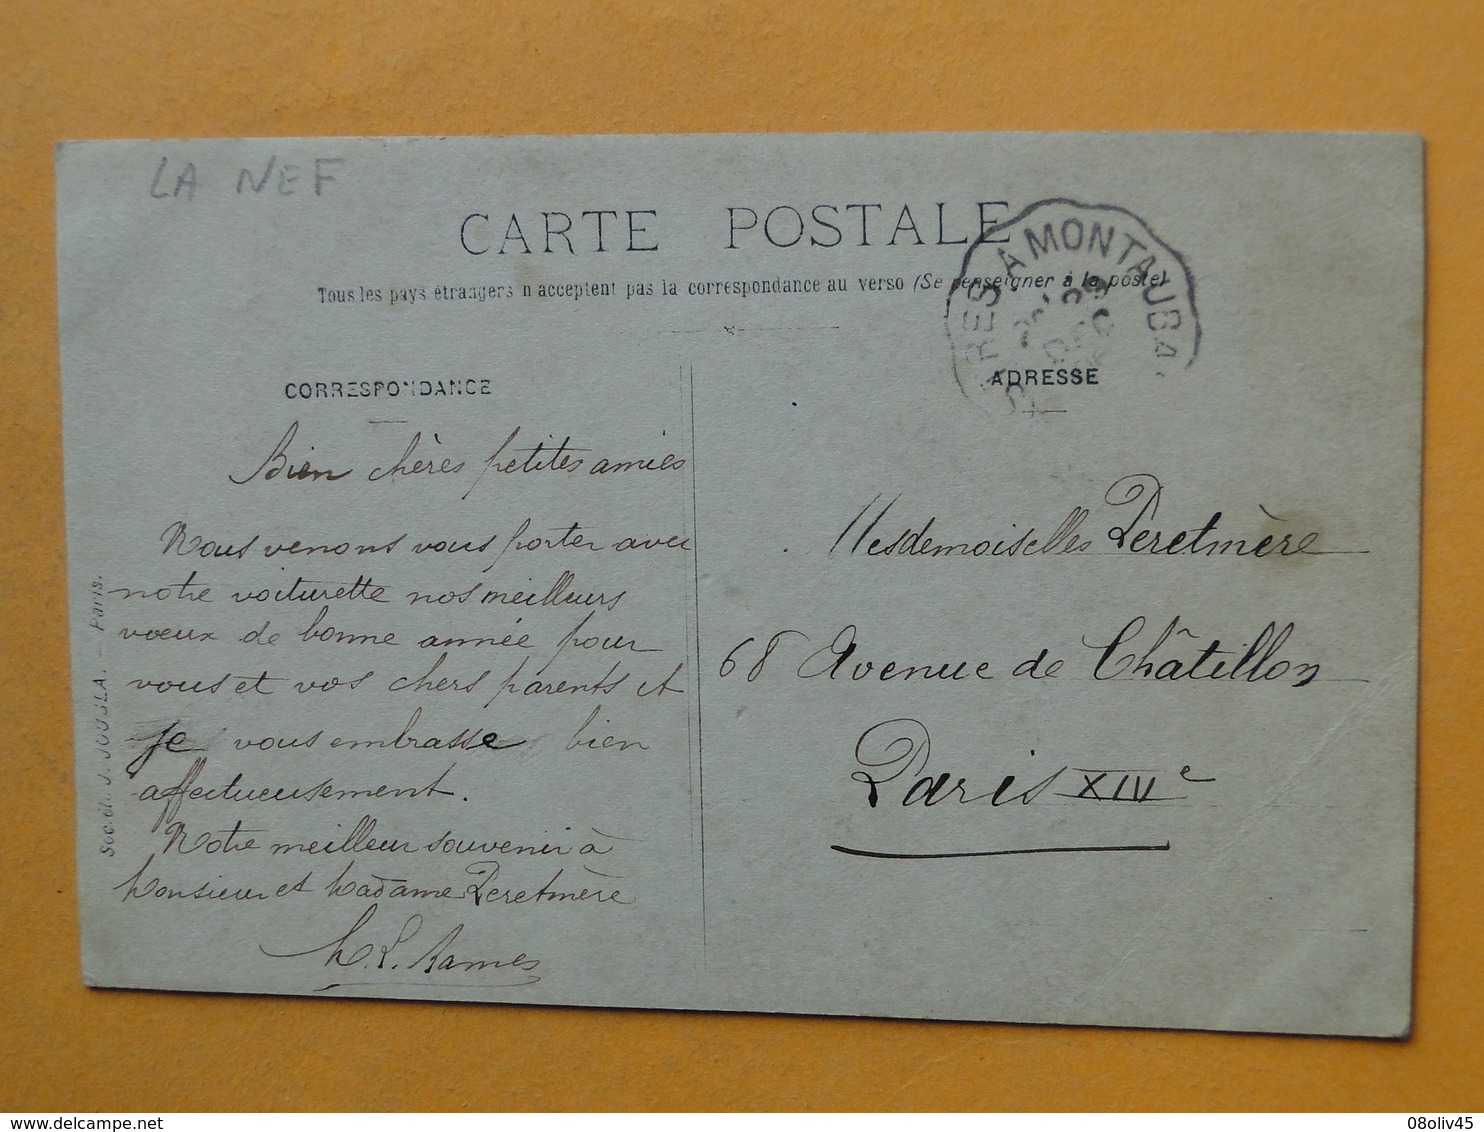 LA NEF
CARTE POSTALE
Tous les pays étrangers n'acceptent pas la correspondance au verso (Se renseigner à la poste)
RES A MONTAUBA
CORRESPONDANCE
ADRESSE
Bien chères petites amies
Nous venons vous porter avec
notre voiturette nos meilleurs
vœux de bonne année pour
vous et vos chers parents et
je vous embrasse bien
affectueusement.
Notre meilleur souvenir à
Monsieur et Madame Peretmère
M. L. Rames
Mesdemoiselles Peretmère
68 Avenue de Châtillon
Paris XIVe
Société J. JOUGLA. - Paris.
delcampe.net
08oliv45